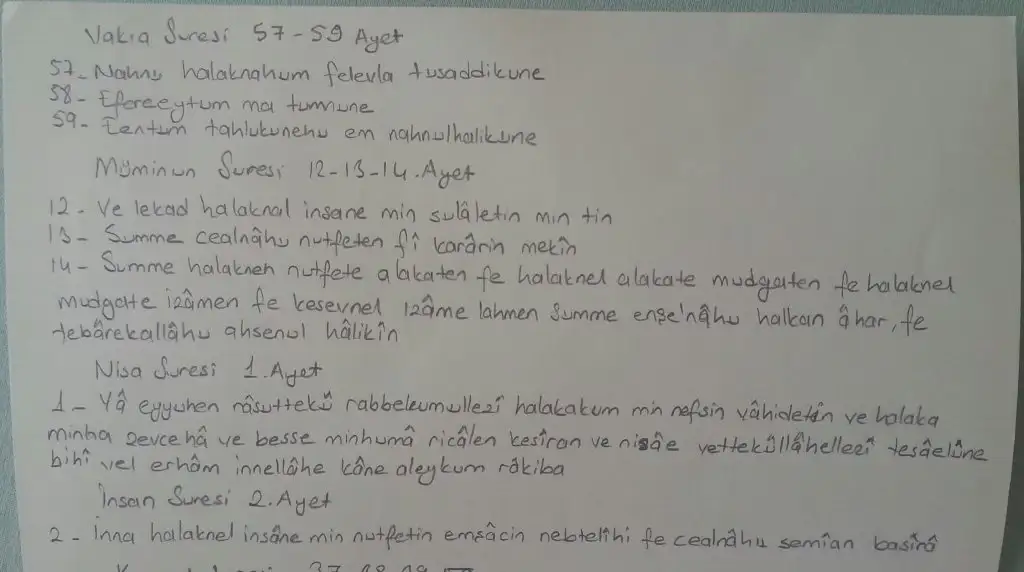 Vakıa Suresi 57-59 Ayet
57- Nahnu halaknahum felevla tusaddikune
58- Efereeytum ma tumnune
59- Eentum tahlukunehu em nahnulhalikune
Müminun Suresi 12-13-14. Ayet
12- Ve lekad halaknal insane min sulâletin min tin
13- Summe cealnâhu nutfeten fî karârin mekîn
14- Summe halakneh nutfete alakaten fe halaknel alakate mudgaten fe halaknel
mudgate izâmen fe kesevnel izâme lahmen summe enşe'nâhu halkan âhar, fe
tebârekallâhu ahsenul hâlikîn
Nisa Suresi 1. Ayet
1- Yâ eyyuhen nâsuttekû rabbekumullezî halakakum min nefsin vâhidetin ve halaka
minha zevcehâ ve besse minhumâ ricâlen kesîran ve nisâe vettekûllâhellezî tesâelûne
bihî vel erhâm innellâhe kâne aleykum râkiba
İnsan Suresi 2. Ayet
2- İnna halaknel insâne min nutfetin emşâcin nebtelîhi fe cealnâhu semîan basîrâ